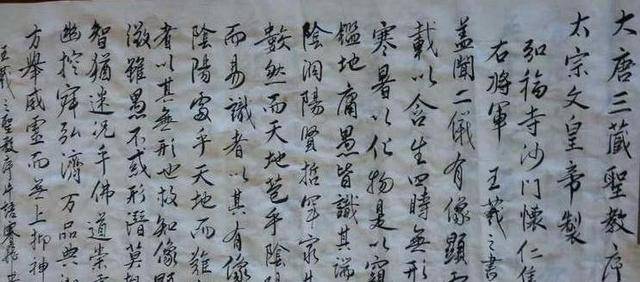 大唐三藏聖教序
太宗文皇帝製
弘福寺沙門懷仁集
右將軍王羲之書
蓋聞二儀有像顯
載以含生四時無形
寒暑以化物是以窺
鑑地庸愚皆識其端
陰洞陽賢哲罕窮
數然而天地苞乎陰
而易識者以其有像
陰陽處乎天地而難
者以其無形也故知像顯
徵雖愚不或形潛莫
智猶迷況乎佛道崇
幽控寂弘濟万品典
方舉威靈而無上抑神
王羲之聖教序